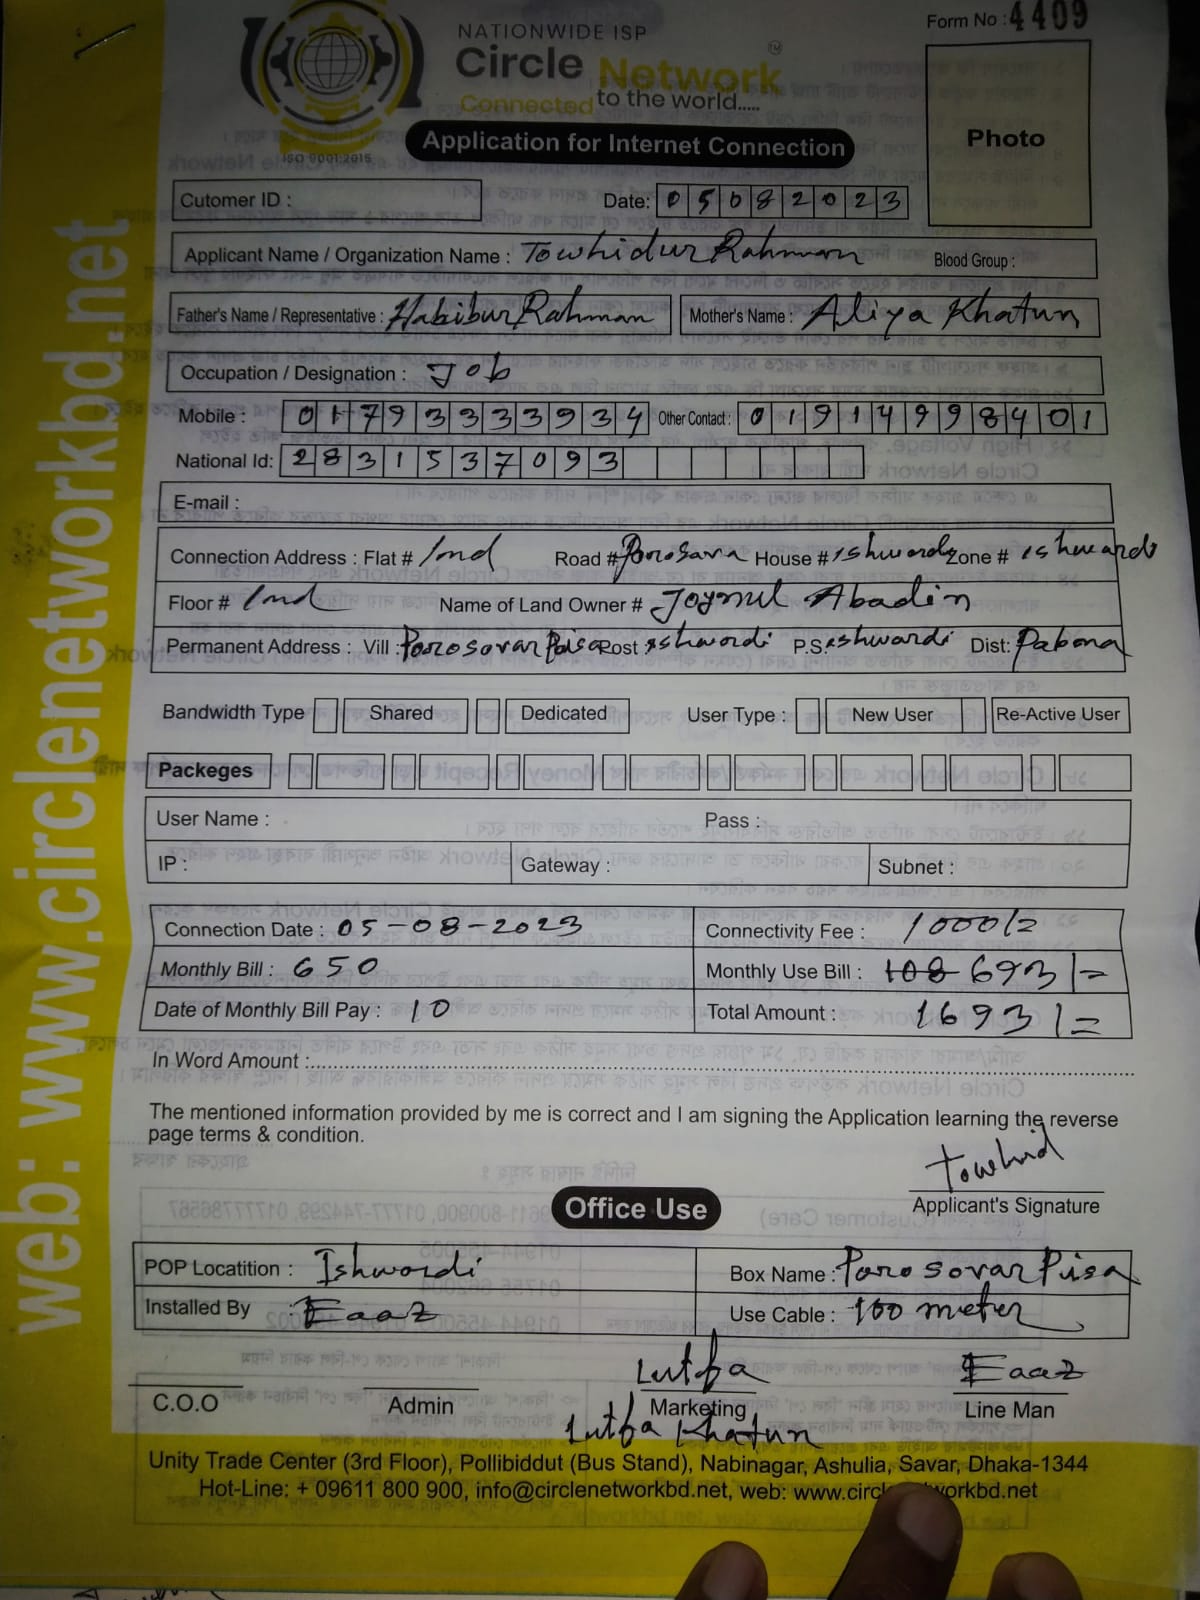 NATIONWIDE ISP
Circle Network TM
Connected to the world.....
ISO 9001:2015
Form No : 4409
Photo
Application for Internet Connection
Cutomer ID :
Date: 05082023
Applicant Name / Organization Name : Towhidur Rahman
Blood Group :
Father's Name / Representative : Habibur Rahman
Mother's Name : Aliya Khatun
Occupation / Designation : Job
Mobile : 01793333934 Other Contact : 01914998401
National Id: 2831537093
E-mail :
Connection Address : Flat # Road # House # ishwardi Zone # ishwardi
Floor # Name of Land Owner # Joynul Abadin
Permanent Address : Vill : Post : ishwardi P.S. ishwardi Dist: Pabona
Bandwidth Type Shared Dedicated User Type : New User Re-Active User
Packeges
User Name : Pass :
IP : Gateway : Subnet :
Connection Date : 05-08-2023 Connectivity Fee : 1000/=
Monthly Bill : 650 Monthly Use Bill : 693/=
Date of Monthly Bill Pay : 10 Total Amount : 1693/=
In Word Amount :
The mentioned information provided by me is correct and I am signing the Application learning the reverse
page terms & condition.
Towhid
Applicant's Signature
Office Use
POP Locatition : Ishwordi Box Name : Poro sovar Pisa
Installed By : Eaaz Use Cable : 100 meter
Lutfa Eaaz
C.O.O Admin Marketing Line Man
Lutfa Khatun
Unity Trade Center (3rd Floor), Pollibiddut (Bus Stand), Nabinagar, Ashulia, Savar, Dhaka-1344
Hot-Line: + 09611 800 900, info@circlenetworkbd.net, web: www.circ workbd.net
web: www.circlenetworkbd.net